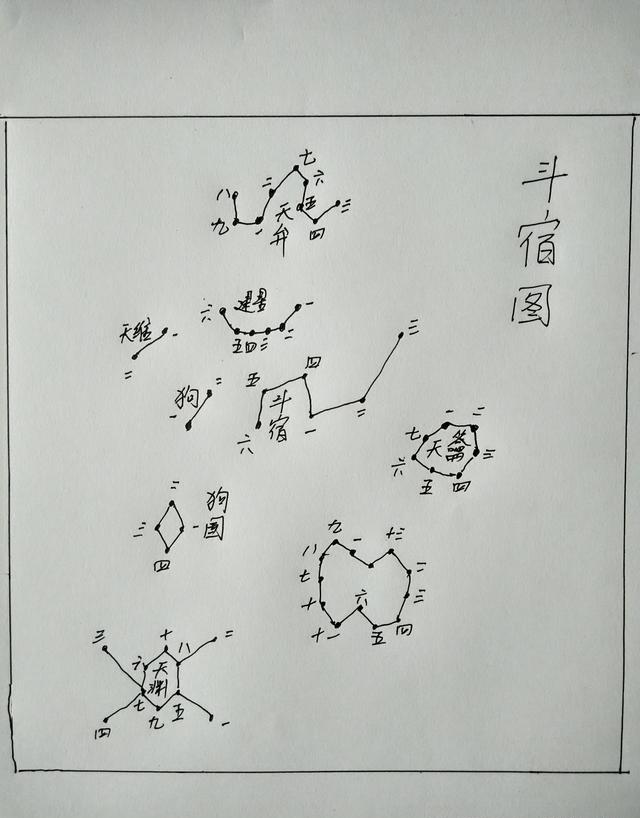 斗宿图
七
八
二
六
三
九
一
天弁
五
四
建星
一
六
天维
一
二
五四三
二
三
四
二
五
狗
一
斗宿
一
二
六
一
二
七
天
三
六
五
四
二
狗国
三
一
四
九
一
十三
八
二
七
三
十
六
十一
五
四
三
十
二
六
八
天渊
七
五
四
九
一